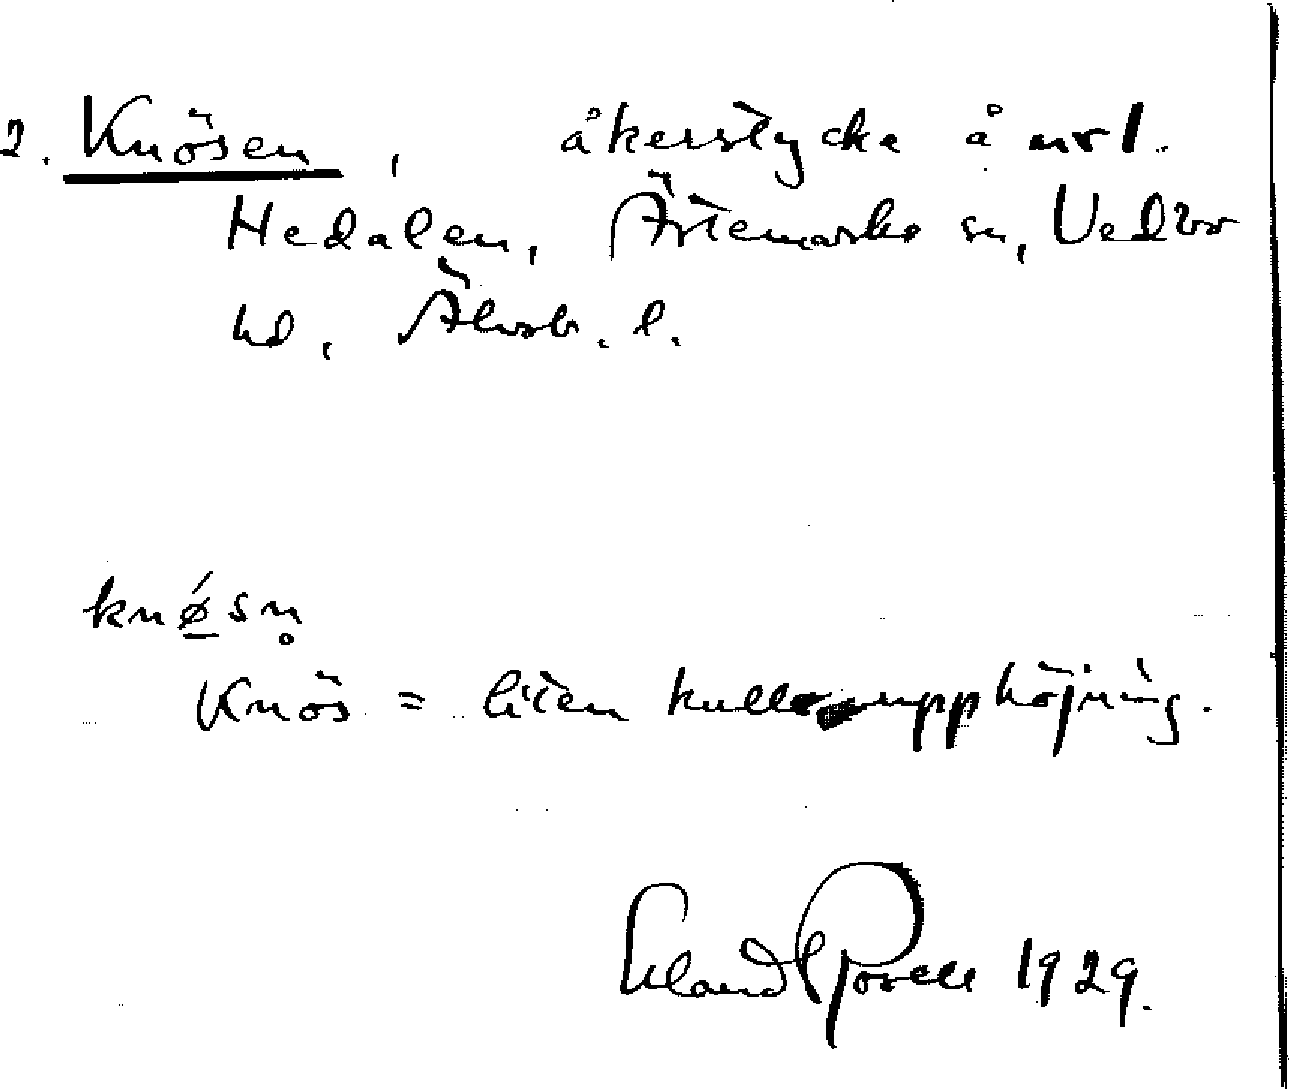 2. Knösen, åkerstycke å nr 1.
Hedalen, Ärtemarks sn, Vedbo
hd, Älvsb. l.
knǿ̱sn̥
Knös = liten kulle, upphöjning.
Rosell 1929.